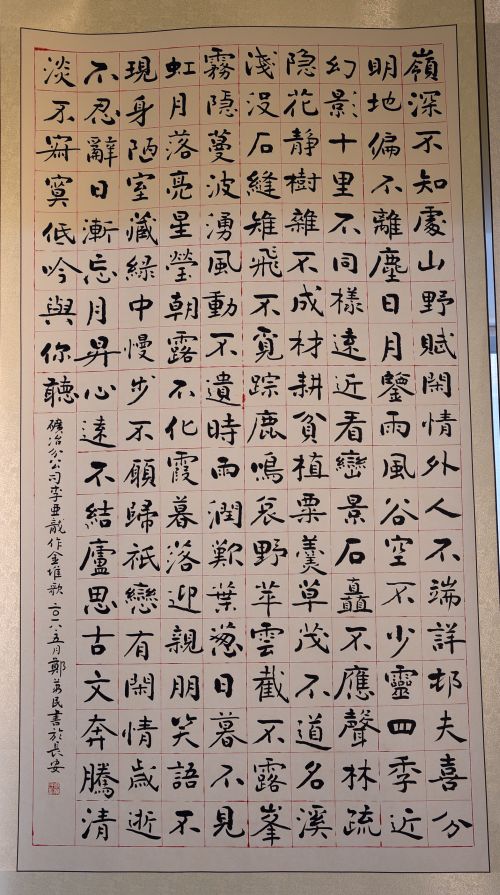 嶺深不知處山野賦閑情外人不端詳邨夫喜分
明地偏不離塵日月鑒雨風谷空不少靈四季近
幻影十里不同樣遠近看巒景石矗不應聲林疏
隐花靜樹雜不成材耕貧植粟羹草茂不道名溪
淺没石縫雉飛不覓踪鹿鳴哀野苹雲截不露峯
霧隱蔓波湧風動不遺時雨潤歎葉葱日暮不見
虹月落亮星瑩朝露不化霞暮落迎親朋笑語不
現身陋室藏緑中慢步不願歸衹戀有閑情歲逝
不忍辭日漸忘月昇心遠不結廬思古文奔騰清
淡不寂寞低吟與你聽
礦冶分公司李亜龍作金維歌 二〇一八.五月鄭萬民書於長安